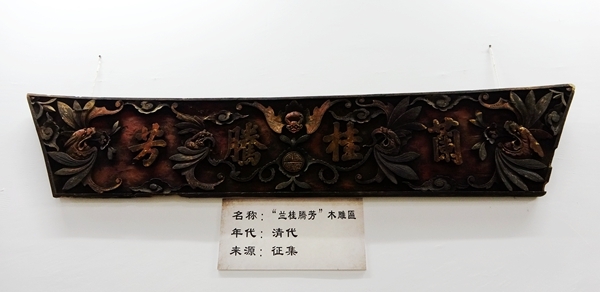 蘭桂騰芳
名称：“兰桂腾芳”木雕匾
年代：清代
来源：征集